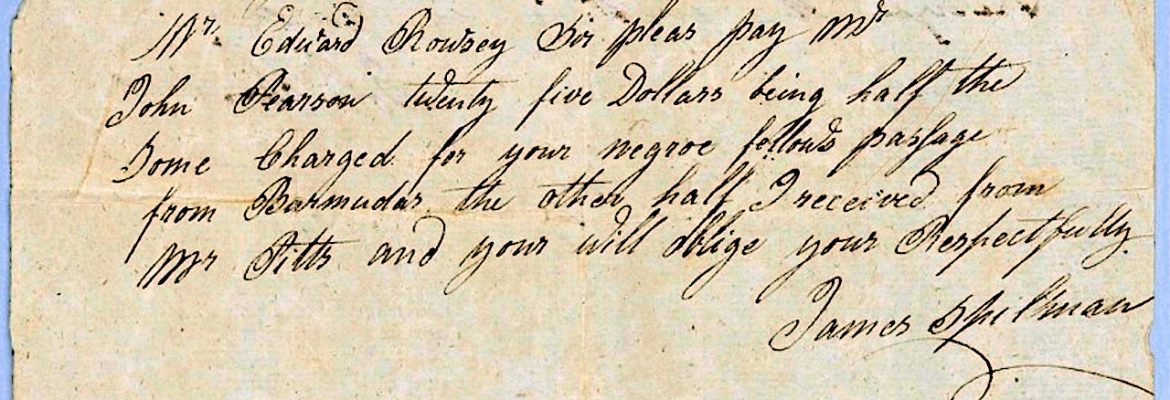 Mr. Edward Rowsey Sir pleas pay Mr
John Pearson twenty five Dollars being half the
Some Charged for your negroe fellows passage
from Barmudas the other half I received from
Mr Pitts and your will oblige your Respectfully
James Spilman